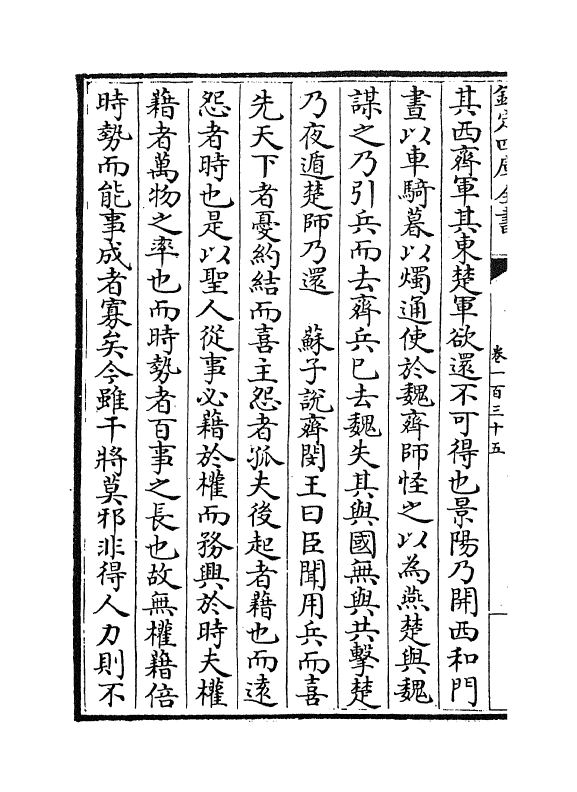 欽定四庫全書
卷一百三十五
其西齊軍其東楚軍欲還不可得也景陽乃開西和門
晝以車騎暮以燭通使於魏齊師怪之以為燕楚與魏
謀之乃引兵而去齊兵已去魏失其與國無與共擊楚
乃夜遁楚師乃還　蘇子說齊閔王曰臣聞用兵而喜
先天下者憂約結而喜主怨者孤夫後起者藉也而遠
怨者時也是以聖人從事必藉於權而務興於時夫權
藉者萬物之率也而時勢者百事之長也故無權藉倍
時勢而能事成者寡矣今雖干將莫邪非得人力則不